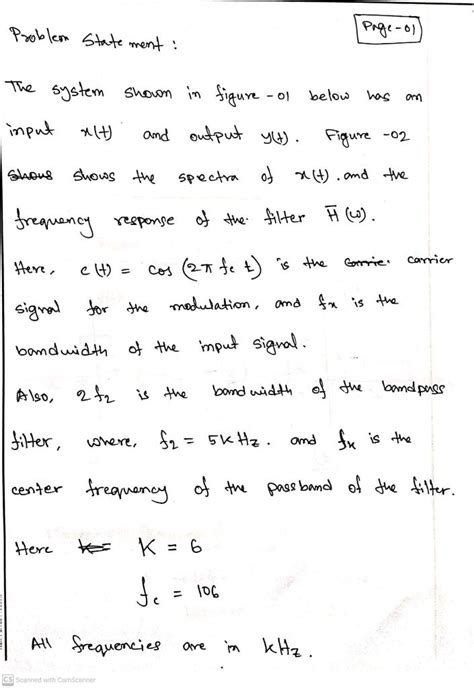 Page-01
Problem Statement :
The system shown in figure-01 below has an
input x(t) and output y(t). Figure -02
shows shows the spectra of x(t). and the
frequency response of the filter H̅(ω).
Here, c(t) = cos (2π fc t) is the carrie. carrier
signal for the modulation, and fx is the
bandwidth of the input signal.
Also, 2f2 is the bandwidth of the bandpass
filter, where, f2 = 5kHz. and fx is the
center frequency of the passband of the filter.
Here k= K = 6
fc = 106
All frequencies are in kHz.
CS Scanned with CamScanner